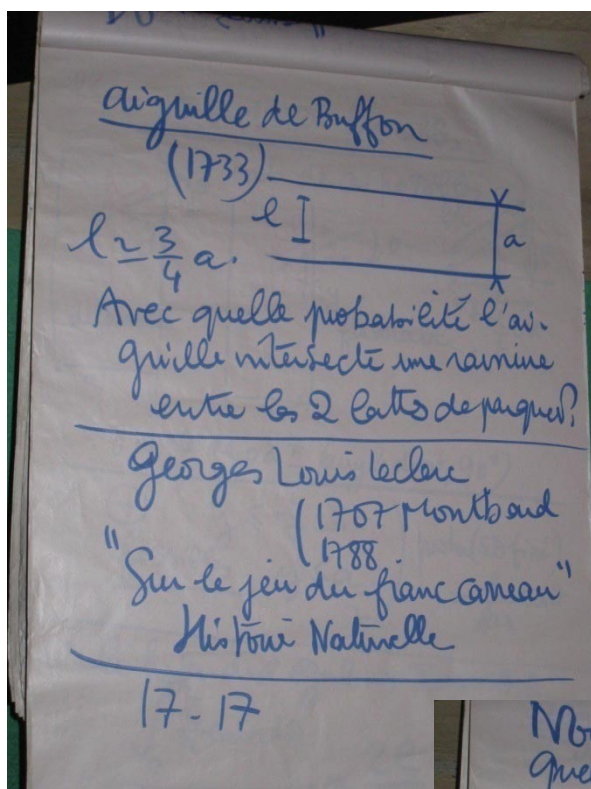 aiguille de Buffon
(1733)
l
a
l = 3/4 a.
Avec quelle probabilité l'ai-
guille intersecte une rainure
entre les 2 lattes de parquet?
Georges Louis Leclerc
(1707 Montbard
1788
"Sur le jeu du franc carreau"
Histoire Naturelle
17-17
No
que